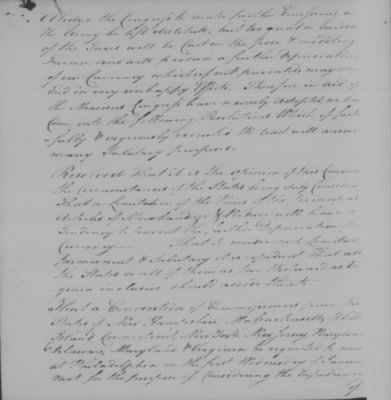 Oblidge the Congress to make further Emissions or
the Army be left destitute, but too great a burden
of the Taxes will be Cast on the poor & middling
Farmer and will produce a further Depreciation
of our Currency which if not prevented may
End in very unhappy Effects. Therefore in aid of
the Measures Congress have wisely Adopted, we have
Come into the following Resolutions Which if faith
fully & vigorously executed we trust will answer
many Salutary purposes.
Resolved That it is the opinion of this Conven
the Circumstances of the States being duly Consider
That a Limitation of the Prices of the
Articles of Merchandize & Produce will have a
Tendency to prevent the further Depreciation of
Currency That to render such Limitation
permanent & Salutary it is expedient that all
the States or all of them as far Westward as Vir
ginia inclusive should accede thereto
That a Convention of Commissioners from the
States of New Hampshire, Massachusetts, Rhode
Island, Connecticut, New York, New Jersey, Pennsylvan
Delaware, Maryland & Virginia be requested to meet
at Philadelphia on the first Wednesday of January
next for the purpose of Considering the Expediency
of